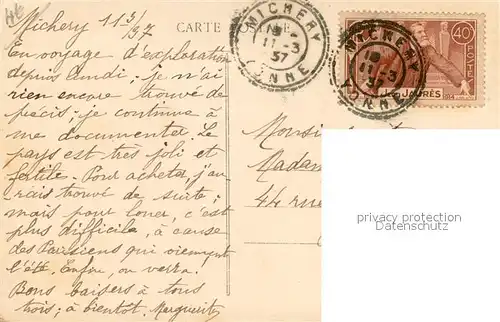 Michery 11 3/37
En voyage d'exploration
depuis lundi ; je n'ai
rien encore trouvé de
précis ; je continue à
me documenter. Le
pays est très joli et
fertile. Pour acheter, j'au-
rais trouvé de suite ;
mais pour louer, c'est
plus difficile, à cause
des Parisiens qui viennent
l'été. Enfin, on verra.
Bons baisers à tous
trois ; à bientôt. Marguerite
CARTE
MICHERY
11-3
37
YONNE
MICHERY
11-3
37
YONNE
40c
POSTES
JAURÈS
Monsi
Madam
44 rue
privacy protection
www.oldthing.com